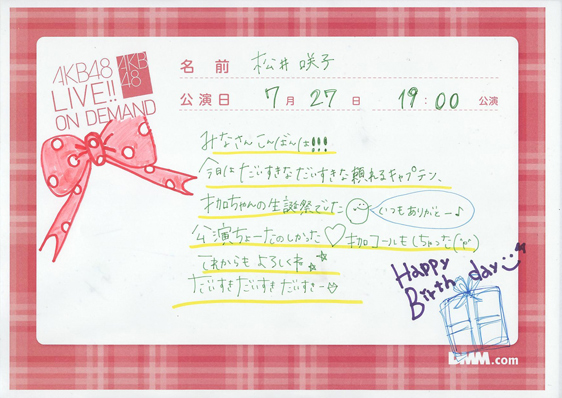 AKB48
LIVE!!
ON DEMAND
AKB
48
名前 松井咲子
公演日 7月27日 19:00 公演
みなさんこんばんは!!!
今日はだいすきなだいすきな頼れるキャプテン、
才加ちゃんの生誕祭でした
いつもありがとー♪
公演ちょーたのしかった♡才加コールもしちゃった(
これからもよろしくね
だいすきだいすきだいすきー♡
Happy
Birthday
DMM.com